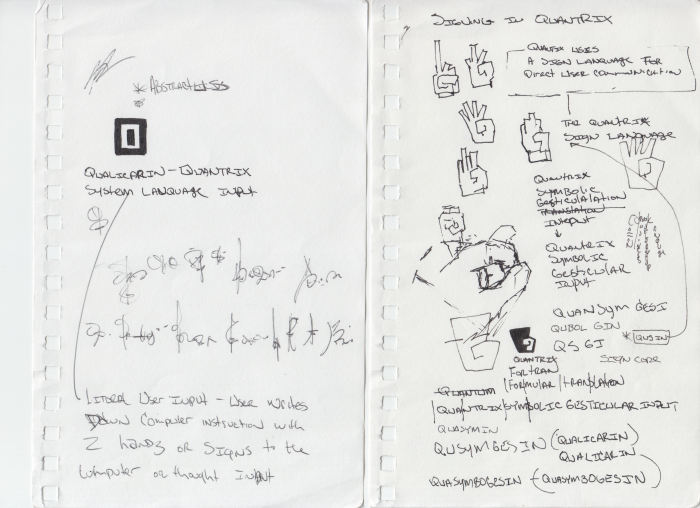 * ABSTRACT
QUALICARIN-QUANTRIX
SYSTEM LANGUAGE INPUT
LITERAL USER INPUT - USER WRITES
DOWN COMPUTER INSTRUCTION WITH
2 HANDS OR SIGNS TO THE
COMPUTER OR THOUGHT INPUT
SIGNING IN QUANTRIX
QUANTRIX USES
A SIGN LANGUAGE FOR
DIRECT USER COMMUNICATION
THE QUANTRIX
SIGN LANGUAGE
QUANTRIX
SYMBOLIC
GESTICULALATION
TRANSLATION
INTERPUT
QUANTRIX
SYMBOLIC
GESTICULAR
INPUT
QUANSYM GESI
QUBOL GIN
* QUSIN
QSGI
SIGN CODE
QUANTRIX
FORTRAN
FORMULAR TRANSLATION
QUANTUM
QUANTRIX SYMBOLIC GESTICULAR INPUT
QUASYMIN
QUSYMGESIN (QUALICARIN)
QUALICARIN
QUASYMBOGESIN (QUASYMBOGESIN)